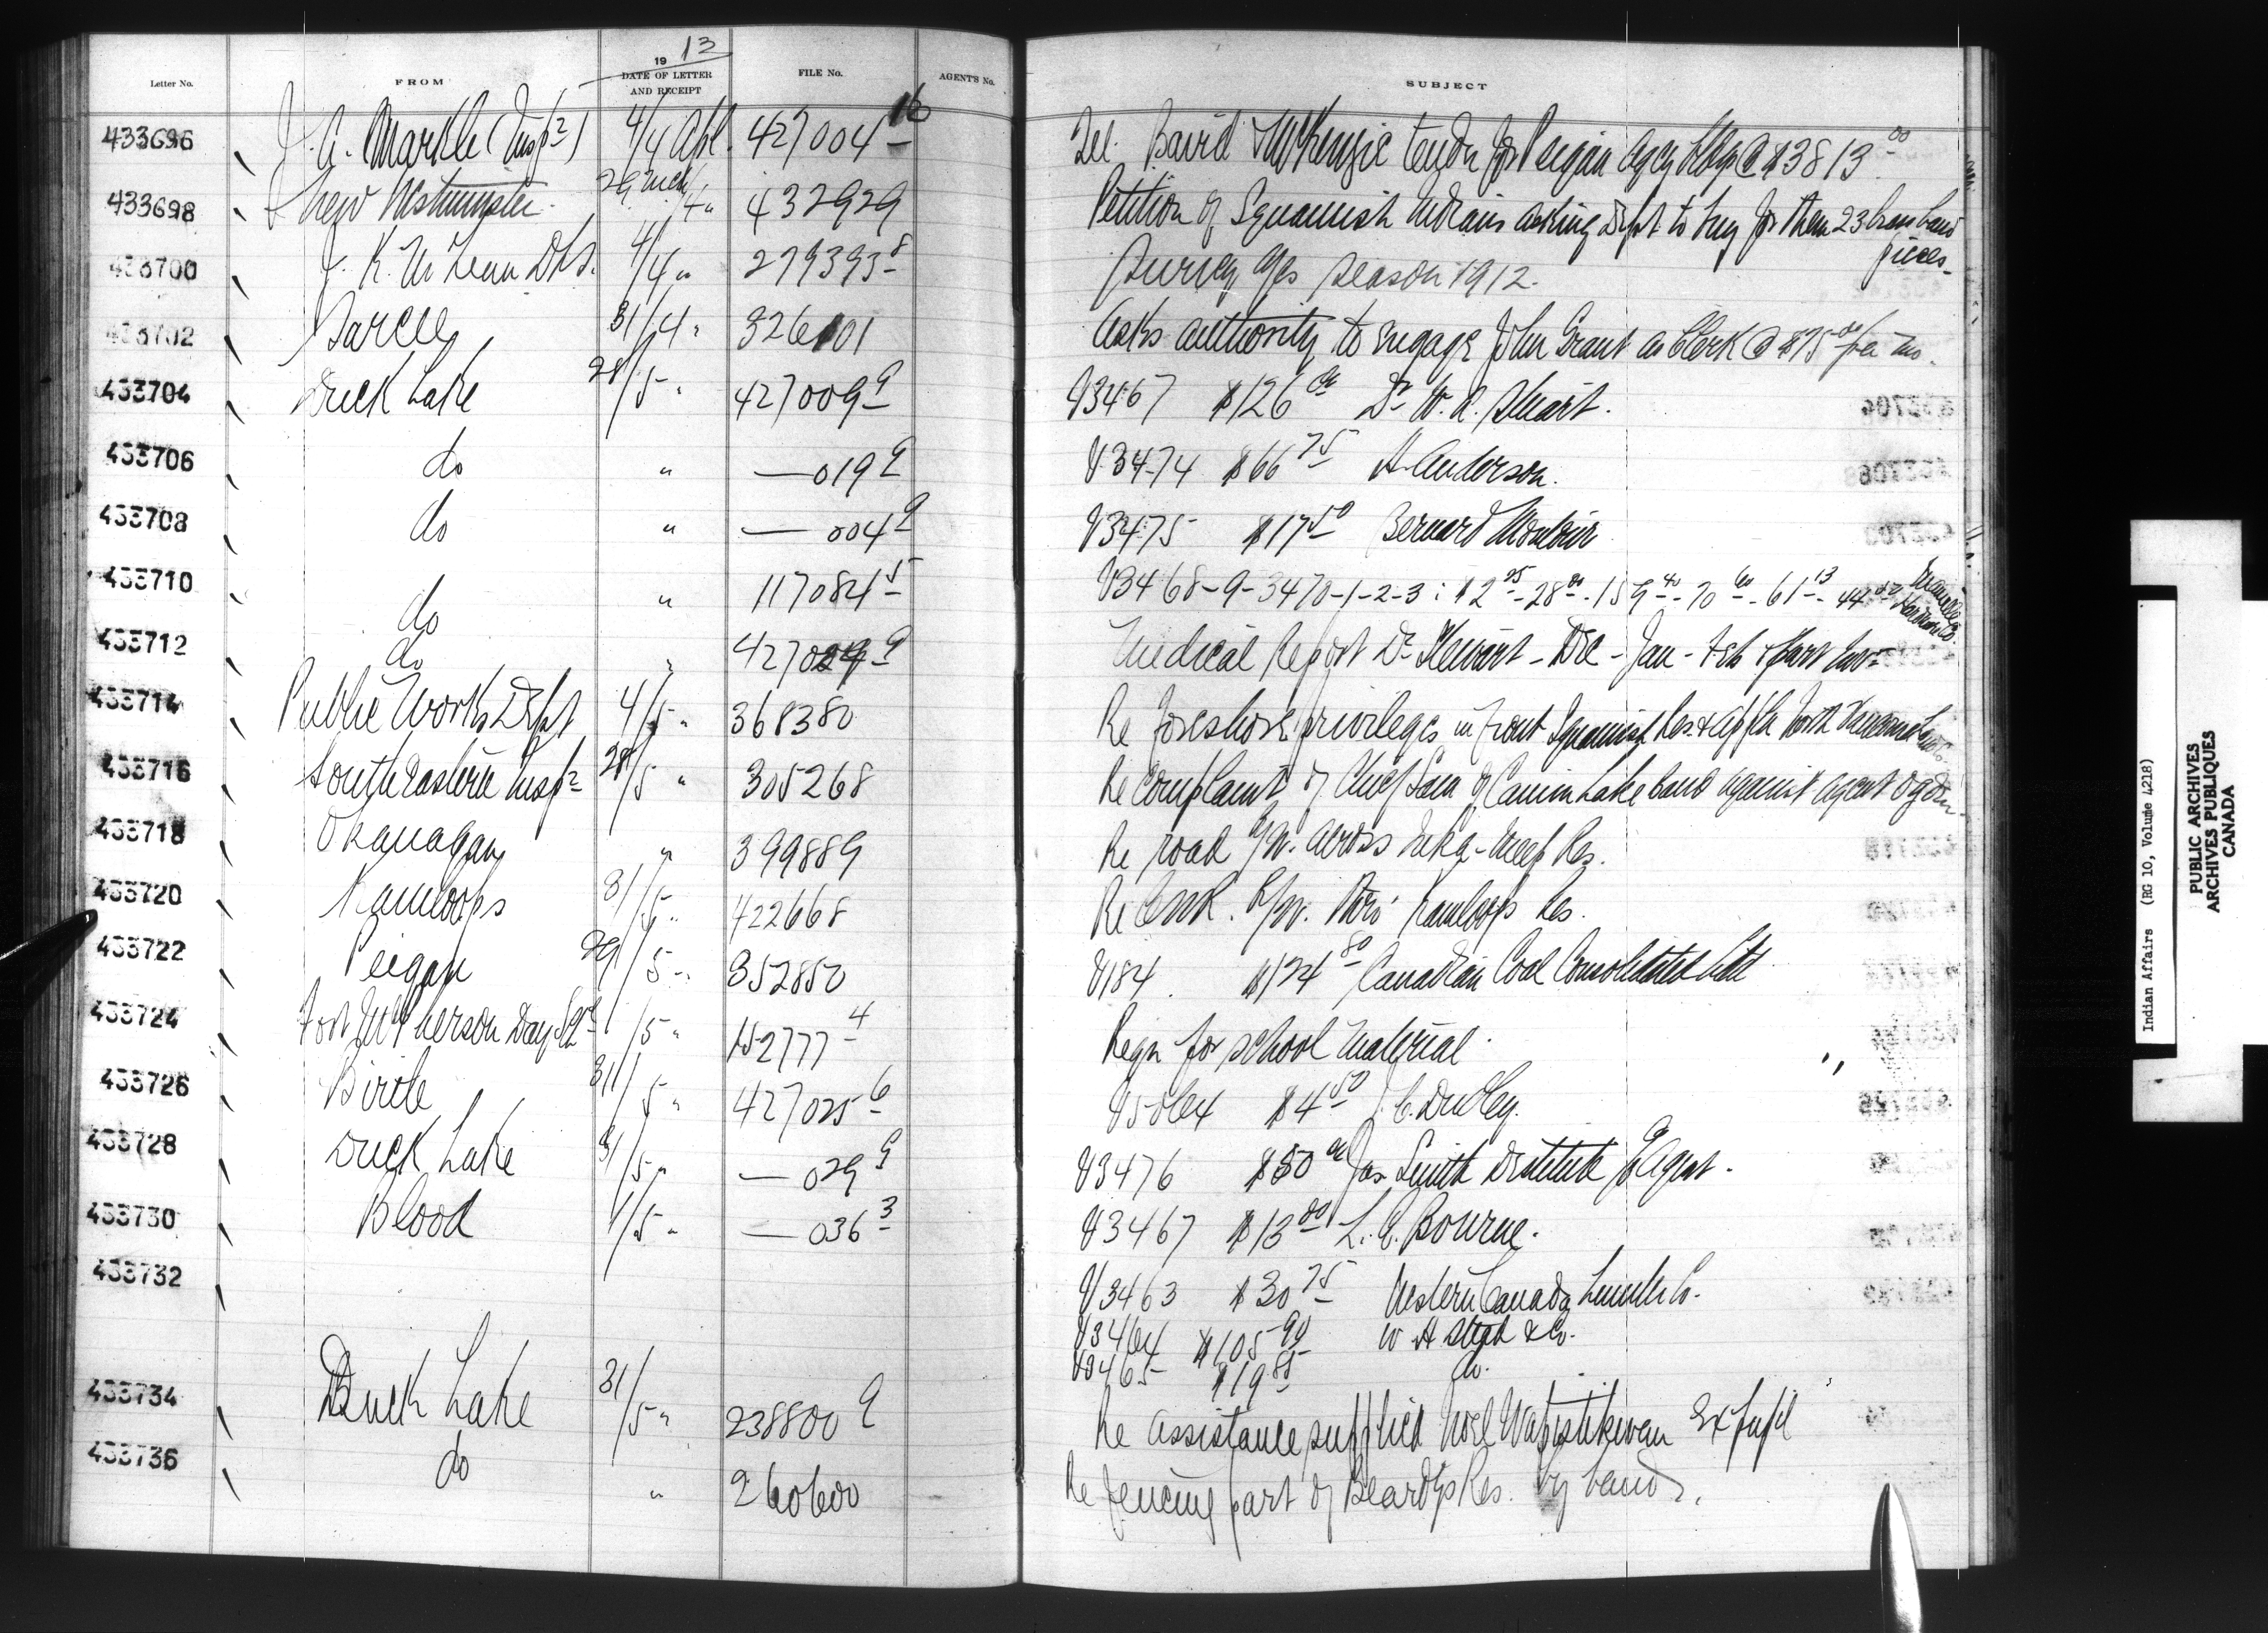 Letter No. FROM 19 13 DATE OF LETTER AND RECEIPT FILE No. AGENT'S No. SUBJECT
433696 J. A. Markle (Insp r) 4/4 Apl. 427004-16 Tel. David McKenzie tender for Peigan Agcy bldgs @ $3813.00
433698 New Westminster 29 Mch/4 " 432929 Petition of Squamish Indians asking Dept to buy for them 23 brass band pieces-
433700 J. K. McLean DLS. 4/4 " 279393-8 Survey season 1912.
433702 Sarcee 31/4 " 326101 Asks authority to engage John Grant as Clerk @ $75.00 per mo.
433704 Duck Lake 28/5 " 427009-9 V3467 $126.00 Dr W. R. Stuart.
433706 do " — 019 9 V3474 $66.75 A. Anderson.
433708 do " — 004 9 V3475 $17.50 Bernard
433710 do " 117084-5 V3468-9-3470-1-2-3: $2 - 28 - 159.40 - 70.60 - 61.13 - 44 Hardware Co.
433712 do " 427029-9 Medical Report Dr Stewart - Dec - Jan - Feb
433714 Public Works Dept 4/5 " 368380 Re foreshore privileges in front Squamish Res. & North Vancouver
433716 South Eastern Insp 28/5 " 305268 Re complaint of Chief Sam of Canim Lake band against agent Ogden.
433718 Okanagan " 399889 Re road R/W. across Inka-meep Res.
433720 Kamloops 31/5 " 422668 Re CNR. R/W. thro' Kamloops Res.
433722 Peigan 29/5 " 352850 V184. $124.80 Canadian Coal Consolidated Ltd
433724 Fort McPherson Day Sch /5 " 152777-4 Reqn for school material.
433726 Birtle 31/5 " 427025-6 V5064 $4.50 J. C. Dudley.
433728 Duck Lake 31/5 " — 029 9 V3476 $50.00 Jas Smith Destitute Agent.
433730 Blood 1/5 " — 036 3 V3467 $13.00 L. E. Bourne.
433732 V3463 $30.75 Western Canada Lumber Co.
V3464 $105.90 W A & Co.
V3465 $19.85 do.
433734 Duck Lake 31/5 " 238800 9 Re assistance supplied Noel Wapistikwan Ex pupil
433736 do " 260600 Re fencing part of Beardys Res. by band.
Indian Affairs (RG 10, Volume 4218)
PUBLIC ARCHIVES
ARCHIVES PUBLIQUES
CANADA